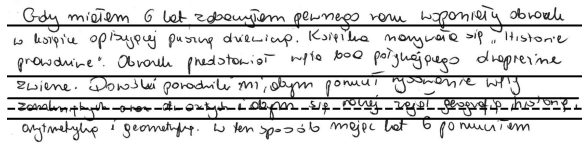 Gdy miałem 6 lat zobaczyłem pewnego razu wspaniały obrazek
w książce opisującej puszczę dziewiczą. Książka nazywała się „Historie
prawdziwe". Obrazek przedstawiał węża boa połykającego drapieżne
zwierzę. Dorośli poradzili mi, abym porzucił rysowanie węży
zamkniętych oraz otwartych i abym się raczej zajął geografią, historią,
arytmetyką i geometryką. W ten sposób mając lat 6 porzuciłem